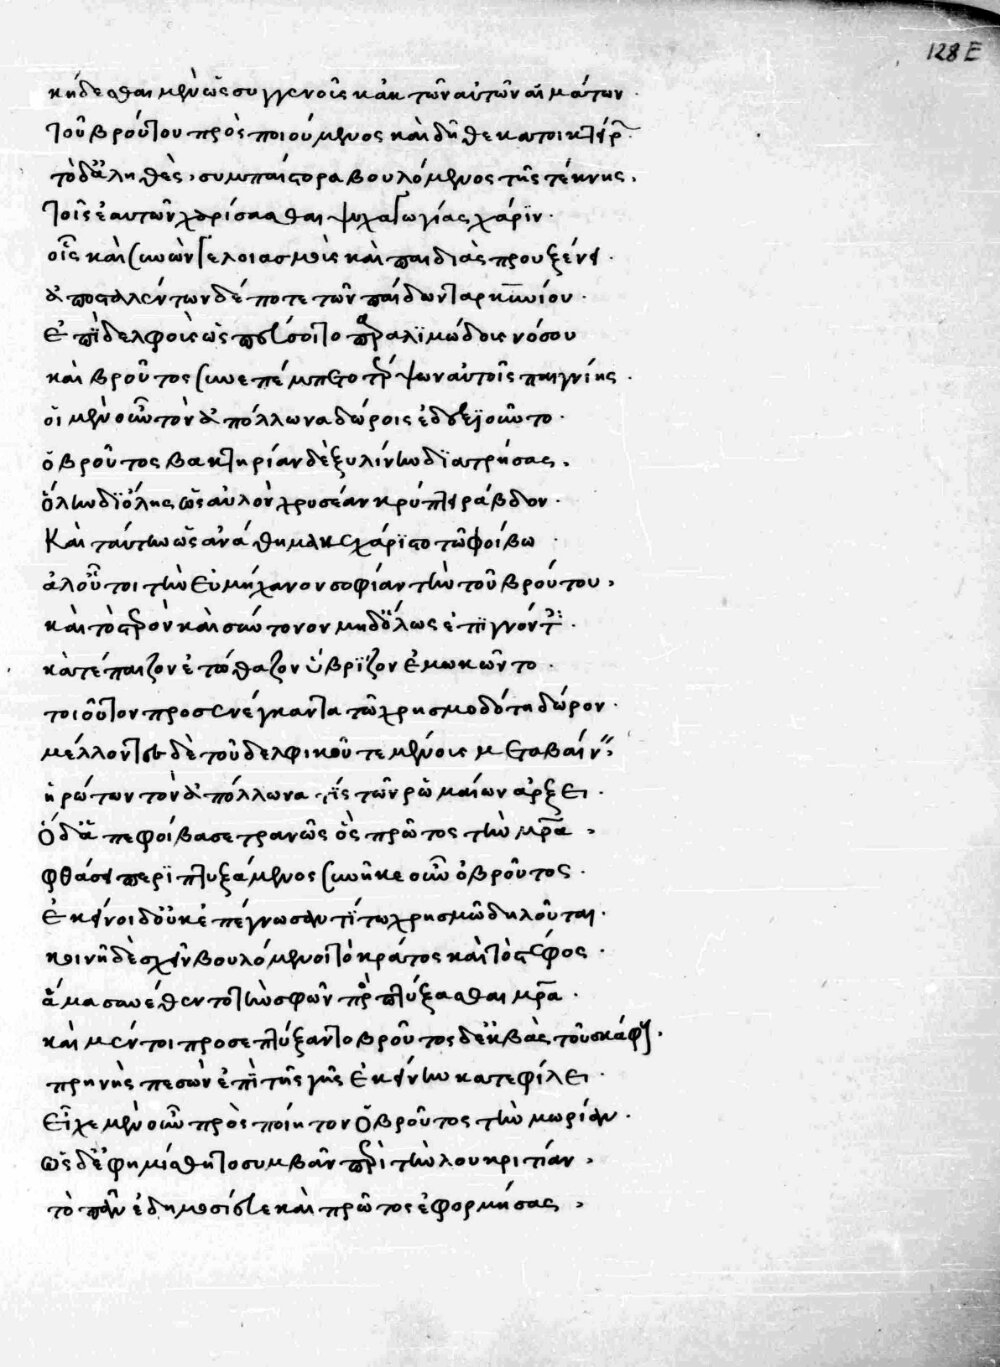 128 E
κήδεσθαι μὲν ὡς συγγενοῦς κἀκ τῶν αὐτῶν αἱμάτων·
τοῦ βρούτου προσποιούμενος καὶ δῆθεν κατοικτείρειν
τὸ δ' ἀληθὲς, συμπαίστορα βουλόμενος τῆς τέκνης,
τοῖς ἑαυτῶν χωρίσασθαι ψυχαγωγίας χάριν·
οἷς καὶ συνὼν γελοιασμοὺς καὶ παιδιὰς προυξένει·
ἀποσταλέντων δέ ποτε τῶν παίδων ταρκυνίου·
ἐπὶ δελφοὺς ὡς παύσοιτο παραλιμώδους νόσου
καὶ βροῦτος συνεπέμπετο τρέψων αὐτοῖς παιγνίης·
οἱ μὲν οὖν τὸν ἀπόλλωνα δώροις ἐδεξιοῦντο·
ὁ βροῦτος βακτηρίαν δὲ ξυλίνην διατρήσας,
ὅλην δι' ὅλης ὡς αὐλὸν χρυσέαν κρύπτει ράβδον·
καὶ ταύτην ὡς ἀνάθημα κεχάριστο τῷ φοίβῳ·
ἀλλ' οὗτοι τὴν εὐμήχανον σοφίαν τὴν τοῦ βρούτου,
καὶ τὸ στερρὸν καὶ σύντονον μηδόλως ἐπιγνόντες·
κατέπαιζον ἐτώθαζον ὕβριζον ἐμωκῶντο·
τοιοῦτον προσενέγκαντα τῷ χρησμοδότῃ δῶρον·
μέλλοντες δὲ τοῦ δελφικοῦ τεμένους μεταβαίνειν,
ἠρώτων τὸν ἀπόλλωνα τίς τῶν ῥωμαίων ἄρξει·
ὁ δ' ἀπεφοίβασε τρανῶς ὃς πρῶτος τὴν μητέρα,
φθάσει περιπτυξάμενος συνῆκε οὖν ὁ βροῦτος·
ἐκεῖνοι δ' οὐκ ἐπέγνωσαν τί τῳ χρησμῷ δηλοῦται·
κοινῇ δὲ σχεῖν βουλόμενοι τὸ κράτος καὶ τὸ στέφος·
ἅμα συνέθεντο τὴν σφῶν προσπτύξασθαι μητέρα·
καὶ μέντοι προσεπτύξαντο βροῦτος δ' ἐκβὰς τοῦ σκάφους·
πρηνὴς πεσὼν ἐπὶ τῆς γῆς ἐκείνην κατεφίλει·
εἶχε μὲν οὖν πρὸς ποίητον ὁ βροῦτος τὴν μωρίαν·
ὡς δ' ἐφημίσθη τὸ συμβὰν περὶ τὴν λουκριτίαν,
τὸ πᾶν ἐδημοσίευε καὶ πρῶτος ἐφορμήσας,